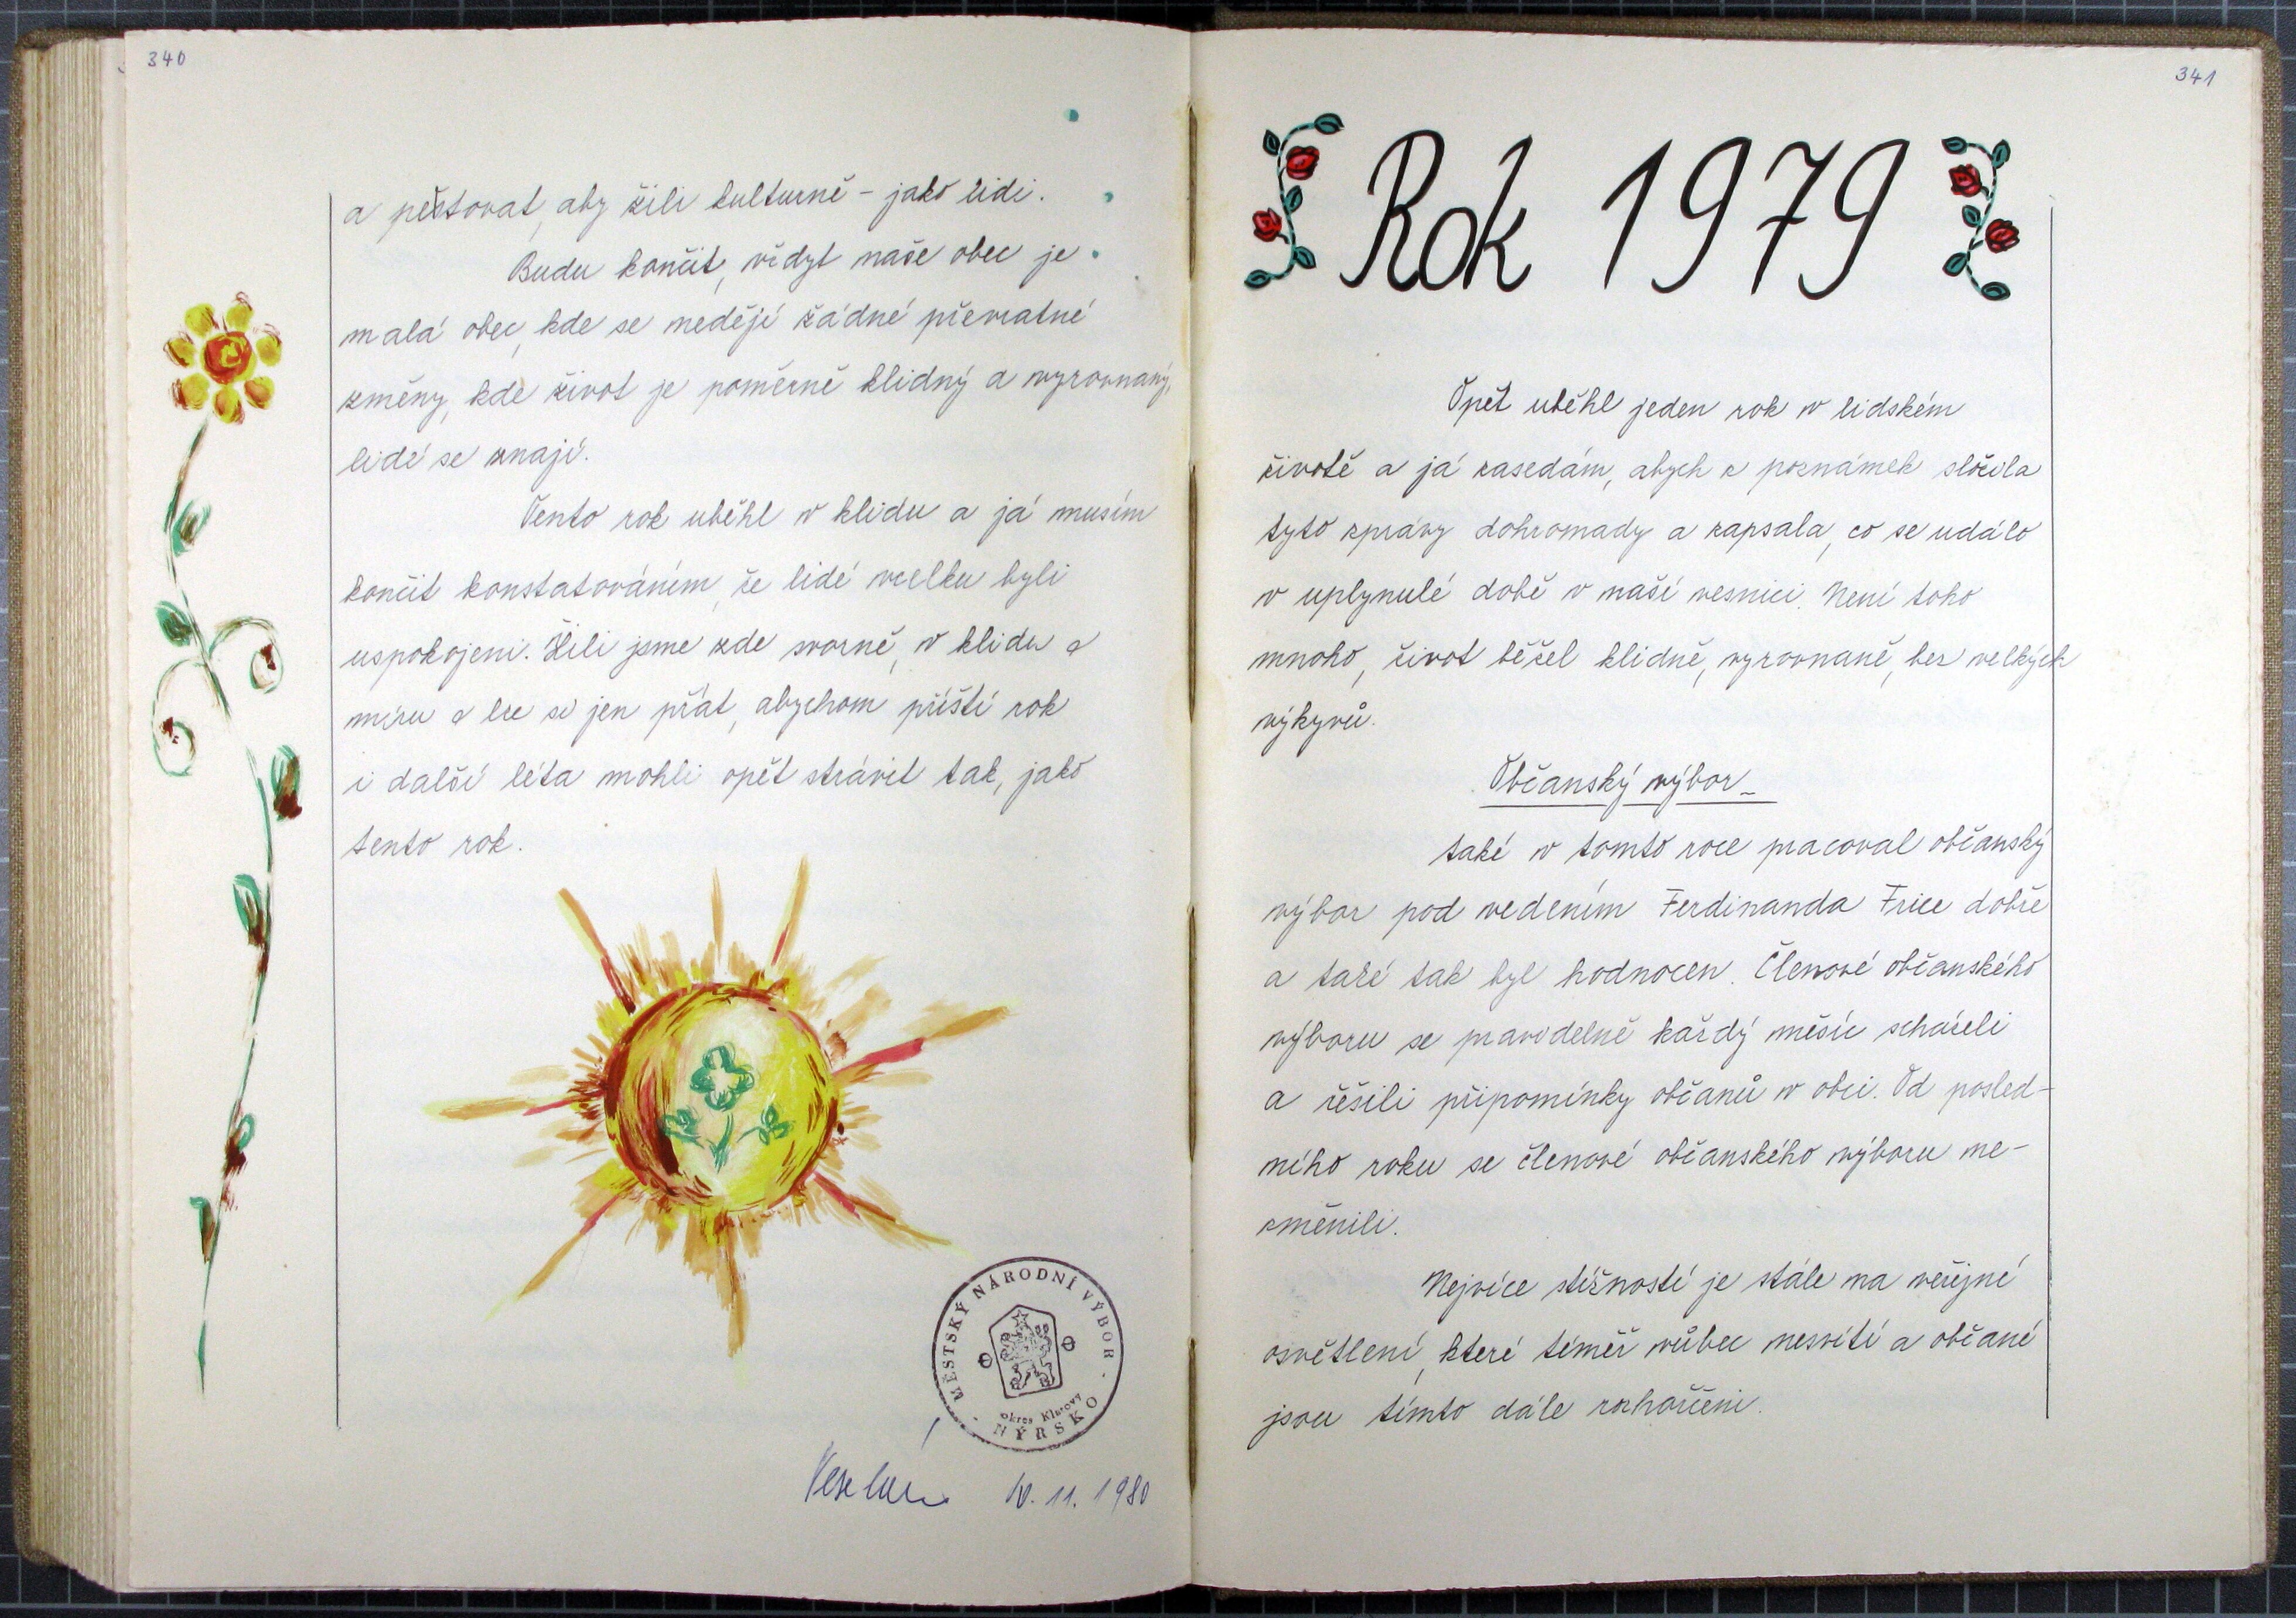 340
a pěstovat, aby žili kulturně - jako lidi.
Budu končit, vždyt naše obec je
malá obec, kde se nedějí žádné převratné
změny, kde život je poměrně klidný a vyrovnaný,
lidé se znají.
Tento rok uběhl v klidu a já musím
končit konstatováním, že lidé vcelku byli
uspokojeni. Žili jsme zde svorně, v klidu a
míru a lze si jen přát, abychom příští rok
i další léta mohli opět strávit tak, jako
tento rok.
MĚSTSKÝ NÁRODNÍ VÝBOR
okres Klatovy
NÝRSKO
10. 11. 1980
341
Rok 1979
Opět uběhl jeden rok v lidském
životě a já zasedám, abych z poznámek složila
tyto zprávy dohromady a zapsala, co se událo
v uplynulé době v naší vesnici. Není toho
mnoho, život běžel klidně, vyrovnaně, bez velkých
výkyvů.
Občanský výbor -
také v tomto roce pracoval občanský
výbor pod vedením Ferdinanda Frice dobře
a také tak byl hodnocen. Členové občanského
výboru se pravidelně každý měsíc scházeli
a řešili připomínky občanů v obci. Od posled-
ního roku se členové občanského výboru ne-
změnili.
Nejvíce stížností je stále na veřejné
osvětlení, které téměř vůbec nesvítí a občané
jsou tímto dále rozhořčeni.